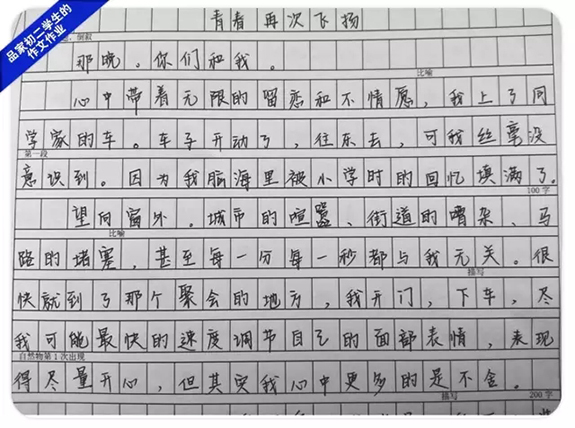 品家初二学生的
作文作业
青春再次飞扬
那晚。你们和我。
比喻
心中带着无限的留恋和不情愿，我上了同
学家的车。车子开动了，往东去，可我丝毫没
第一段
意识到。因为我脑海里被小学时的回忆填满了。
100字
望向窗外。城市的喧嚣、街道的嘈杂、马
比喻
路的堵塞，甚至每一分每一秒都与我无关。很
描写
快就到了那个聚会的地方，我开门，下车，尽
我可能最快的速度调节自己的面部表情，表现
自然物第1次出现
得尽量开心，但其实我心中更多的是不舍。
描写
200字